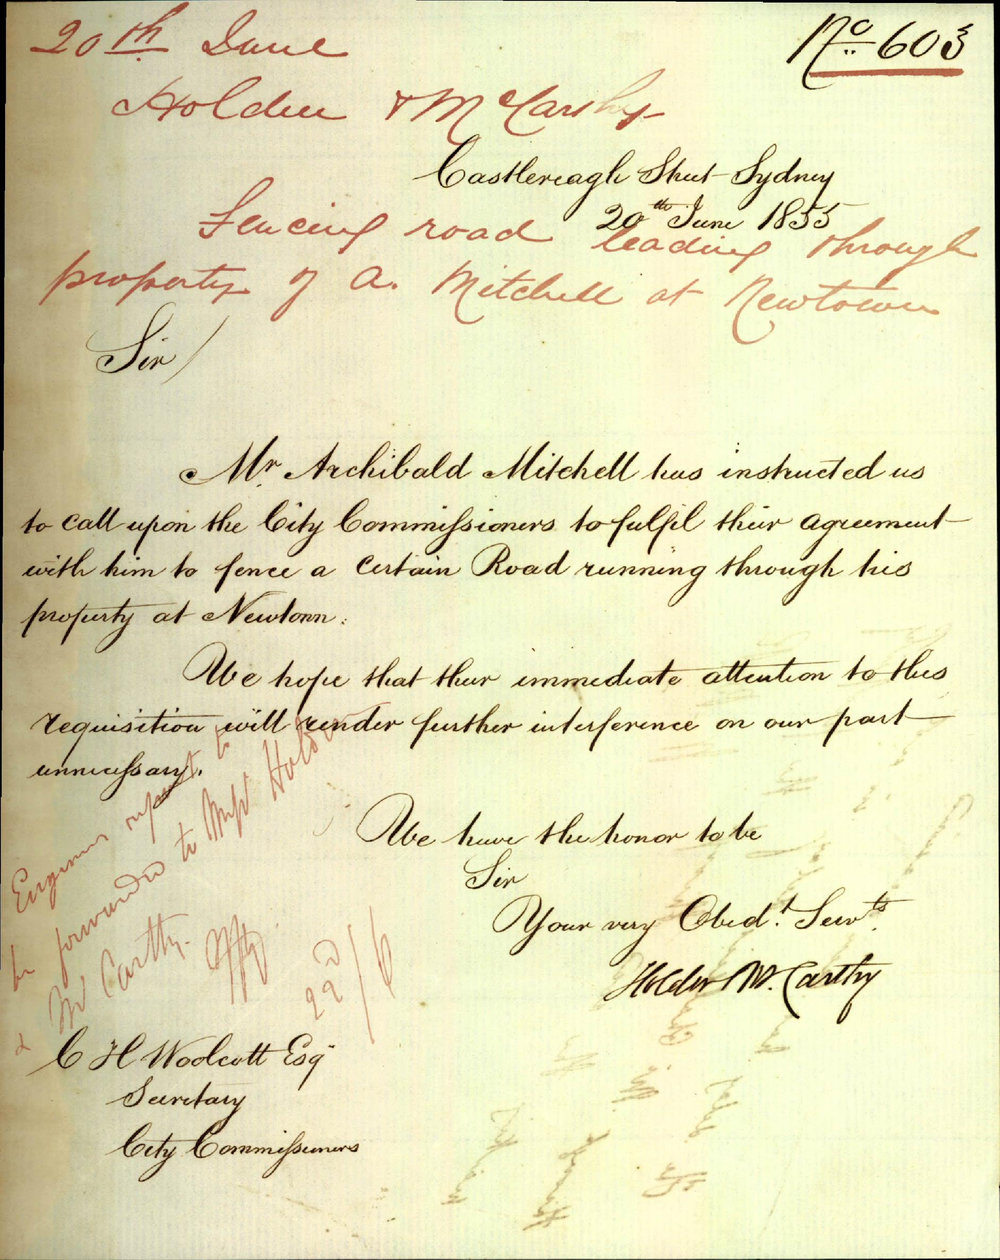 20th June
No 603
Holden & McCarthy
Castlereagh Street Sydney
20th June 1855
Fencing road leading through
property of A. Mitchell at Newtown
Sir/
Mr Archibald Mitchell has instructed us
to call upon the City Commissioners to fulfil their agreement
with him to fence a certain Road running through his
property at Newtown.
We hope that their immediate attention to this
requisition will render further interference on our part
unnecessary.
We have the honor to be
Sir
Your very Obedt. Servts.
Holden McCarthy
Engineers report to
be forwarded to Messrs Holden
& McCarthy.
22d/6
C H Woolcott Esqr
Secretary
City Commissioners